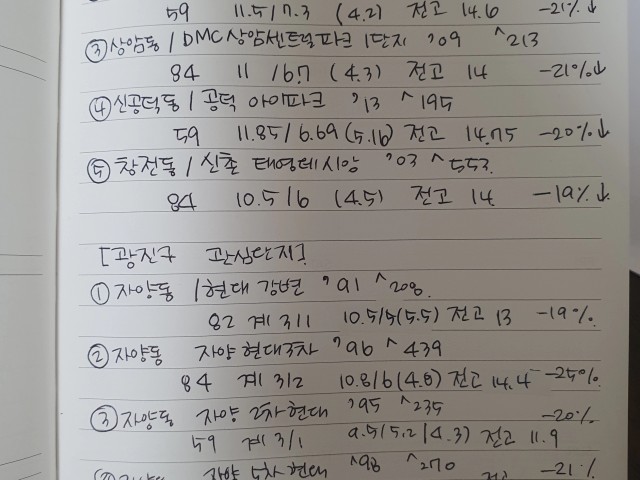 59 11.5/7.3 (4.2) 전고 14.6 -21%↓
③ 상암동 / DMC상암센트럴파크 1단지 '09 ^213
84 11/6.7 (4.3) 전고 14 -21%↓
④ 신공덕동 / 공덕 아이파크 '13 ^195
59 11.85/6.69 (5.16) 전고 14.75 -20%↓
⑤ 창전동 / 신촌 태영데시앙 '03 ^553
84 10.5/6 (4.5) 전고 14 -19%↓
[광진구 관심단지]
① 자양동 / 현대 강변 '91 ^208
82 계 3/1 10.5/5(5.5) 전고 13 -19%
② 자양동 자양 현대3차 '96 ^439
84 계 3/2 10.8/6(4.8) 전고 14.4 -25%
③ 자양동 자양 2차현대 '95 ^235 -20%
59 계 3/1 9.5/5.2(4.3) 전고 11.9
자양 5차 현대 ^98 ^270 전고 -21%